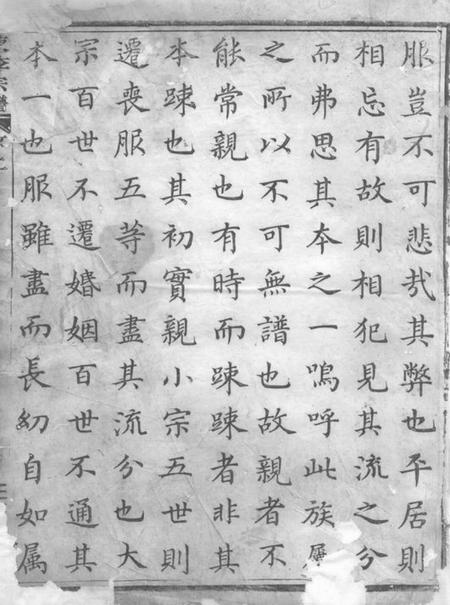 服豈不可悲㢤其弊也平居則
相忘有故則相犯見其流之分
而弗思其本之一嗚呼此族屬
之所以不可無譜也故親者不
能常親也有時而踈踈者非其
本踈也其初實親小宗五世則
遷喪服五等而盡其流分也大
宗百世不遷婚姻百世不通其
本一也服雖盡而長幼自如属